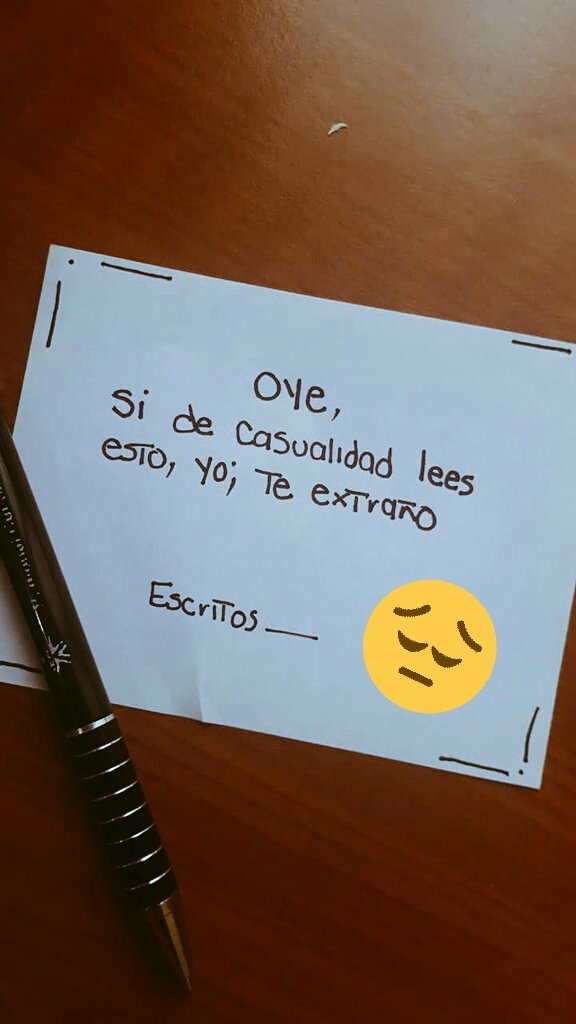 Oye,
si de casualidad lees
esto, yo; te extraño
Escritos__